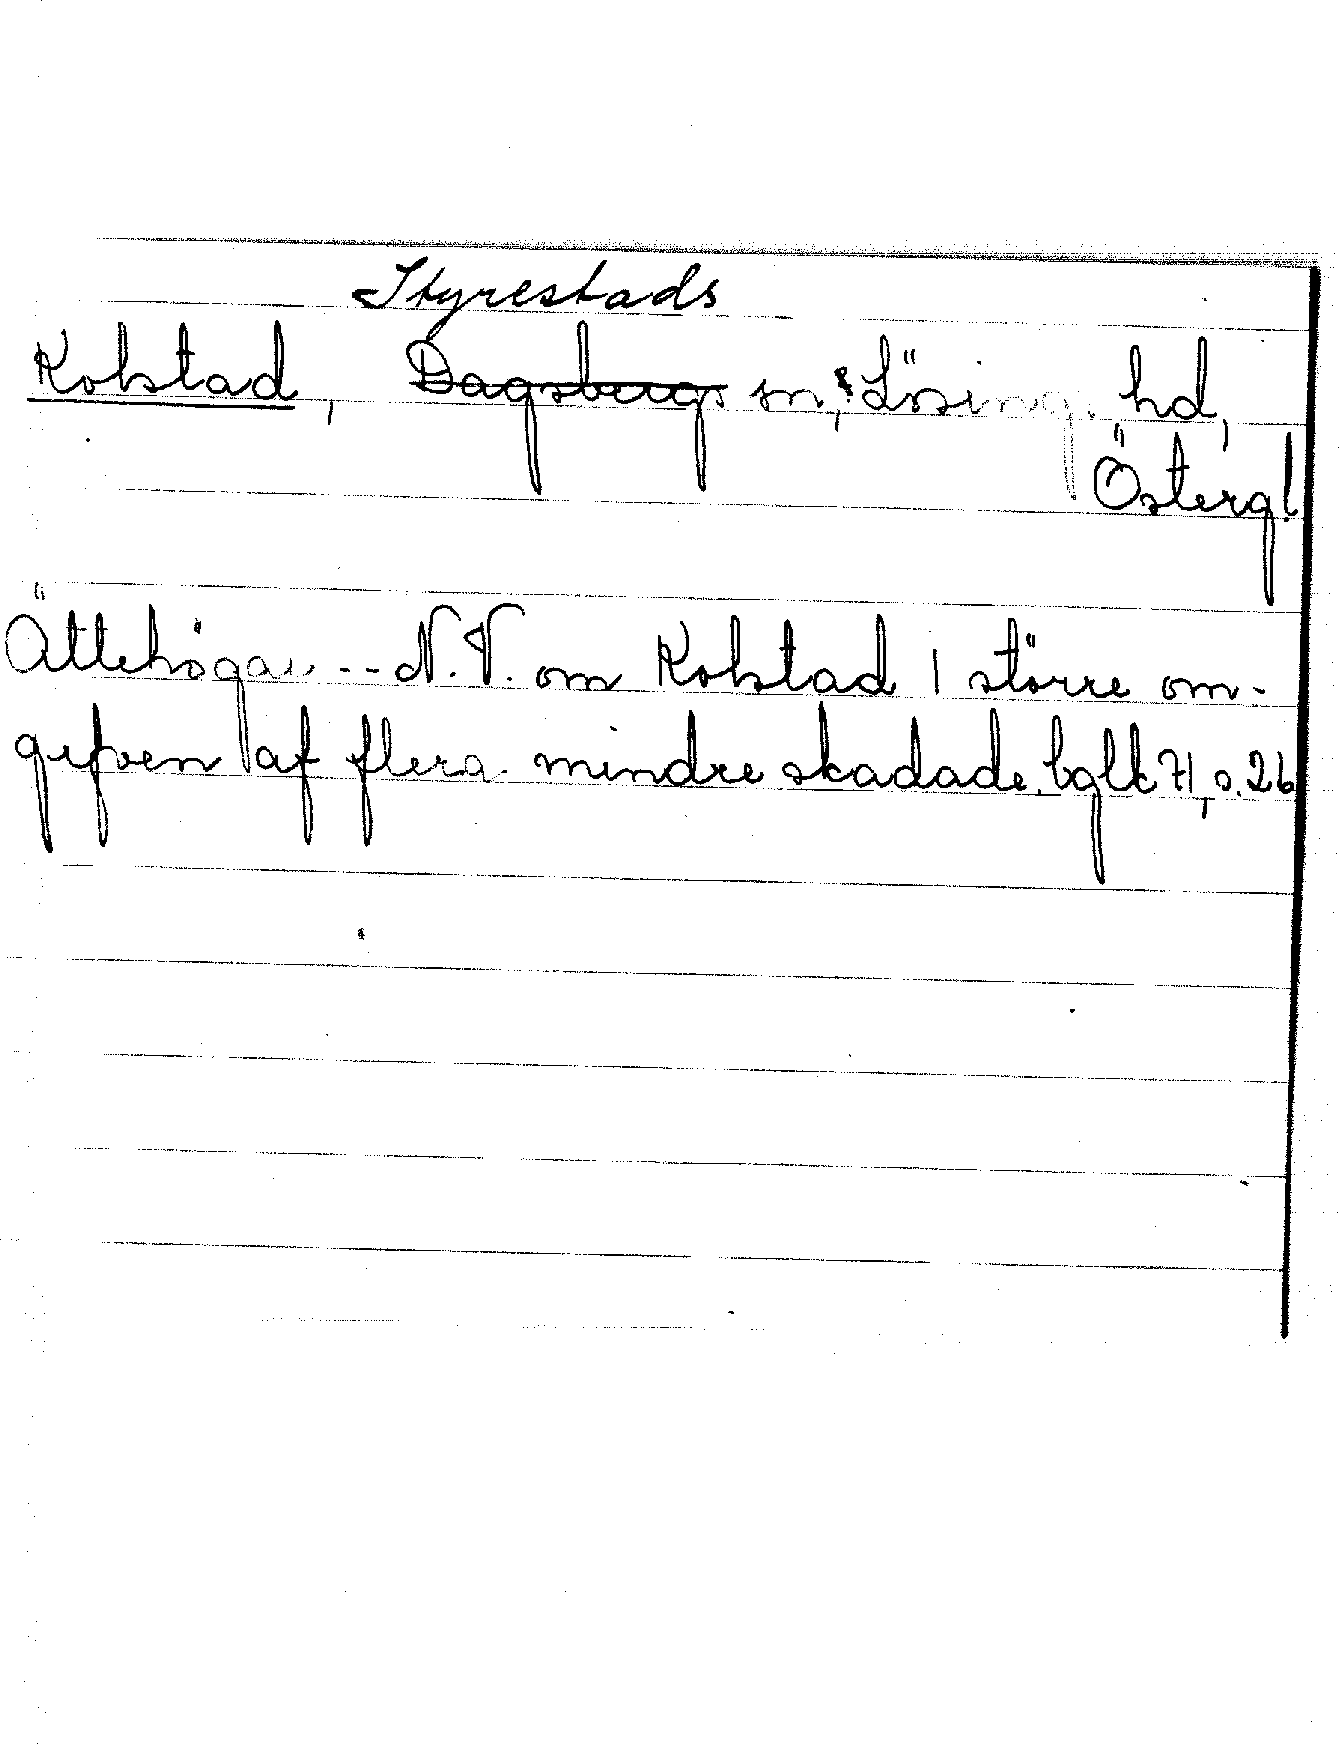 Styrestads
Kolstad, Dagsbergs sn, Lösings hd,
Österg!
Ättehögar -- N.V. om Kolstad 1 större om-
gifven af flera mindre skadade. bglk 71, s. 26